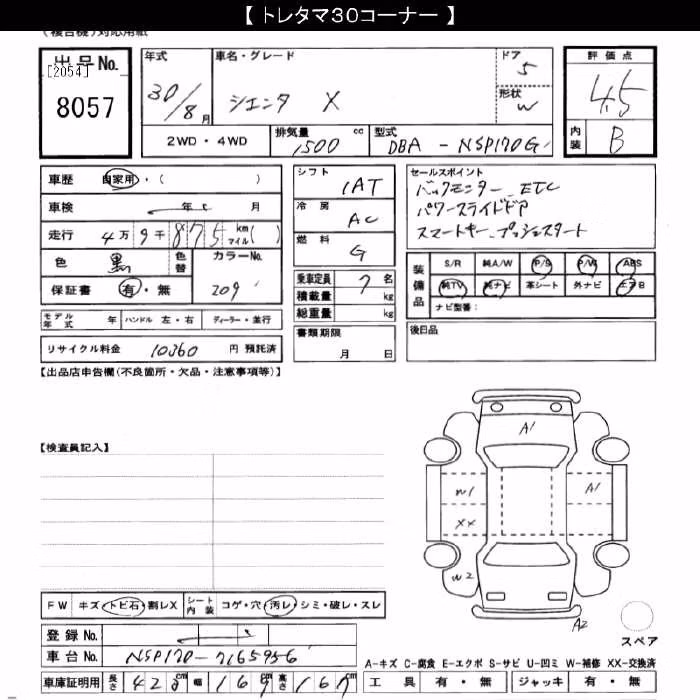 【 トレタマ３０コーナー 】
(複合機)対応用紙
出品No.
[2054]
8057
年式
30/8月
車名・グレード
シエンタ X
ドア
5
形状
W
評価点
4.5
内装
B
2WD・4WD
排気量
1500 cc
型式
DBA-NSP170G
車歴 自家用・( )
車検 年 月
走行 4万9千875 km マイル( )
色 黒 色替 カラーNo.
209
保証書 有・無
モデル年式 年 ハンドル 左・右 ディーラー・並行
リサイクル料金 10360 円 預託済
シフト
1AT
冷房
AC
燃料
G
乗車定員 7 名
積載量 kg
総重量 kg
書類期限
月 日
セールスポイント
バックモニター ETC
パワースライドドア
スマートキー プッシュスタート
装備品
S/R 純A/W P/S P/W ABS
純TV 純ナビ 革シート 外ナビ エアB
ナビ型番:
後日品
【出品店申告欄(不良箇所・欠品・注意事項等)】
【検査員記入】
A1
W1
A1
XX
W2
A2
スペア
FW キズ・トビ石・割レX シート内装 コゲ・穴・汚レ・シミ・破レ・スレ
登録No.
車台No. NSP170-7165956
車庫証明用 長さ 428 cm 幅 169 cm 高さ 167 cm
A-キズ C-腐食 E-エクボ S-サビ U-凹ミ W-補修 XX-交換済
工具 有・無 ジャッキ 有・無